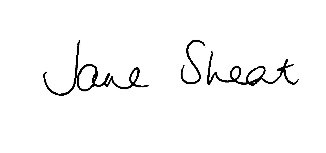 Jane Sheat